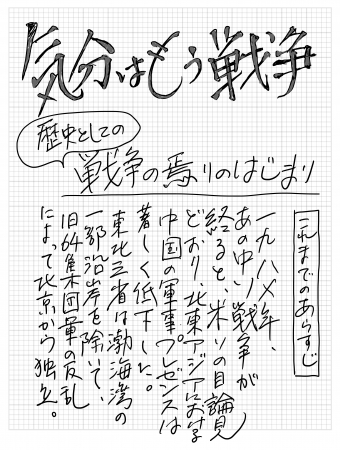 気分はもう戦争
歴史としての
戦争の焉りのはじまり
これまでのあらすじ
一九八X年、
あの中ソ戦争が
経ると、米ソの目論見
どおり、北東アジアにおける
中国の軍事プレゼンスは
著しく低下した。
東北三省は渤海湾の
一部沿岸を除いて、
旧64集団軍の反乱
によって北京から独立。